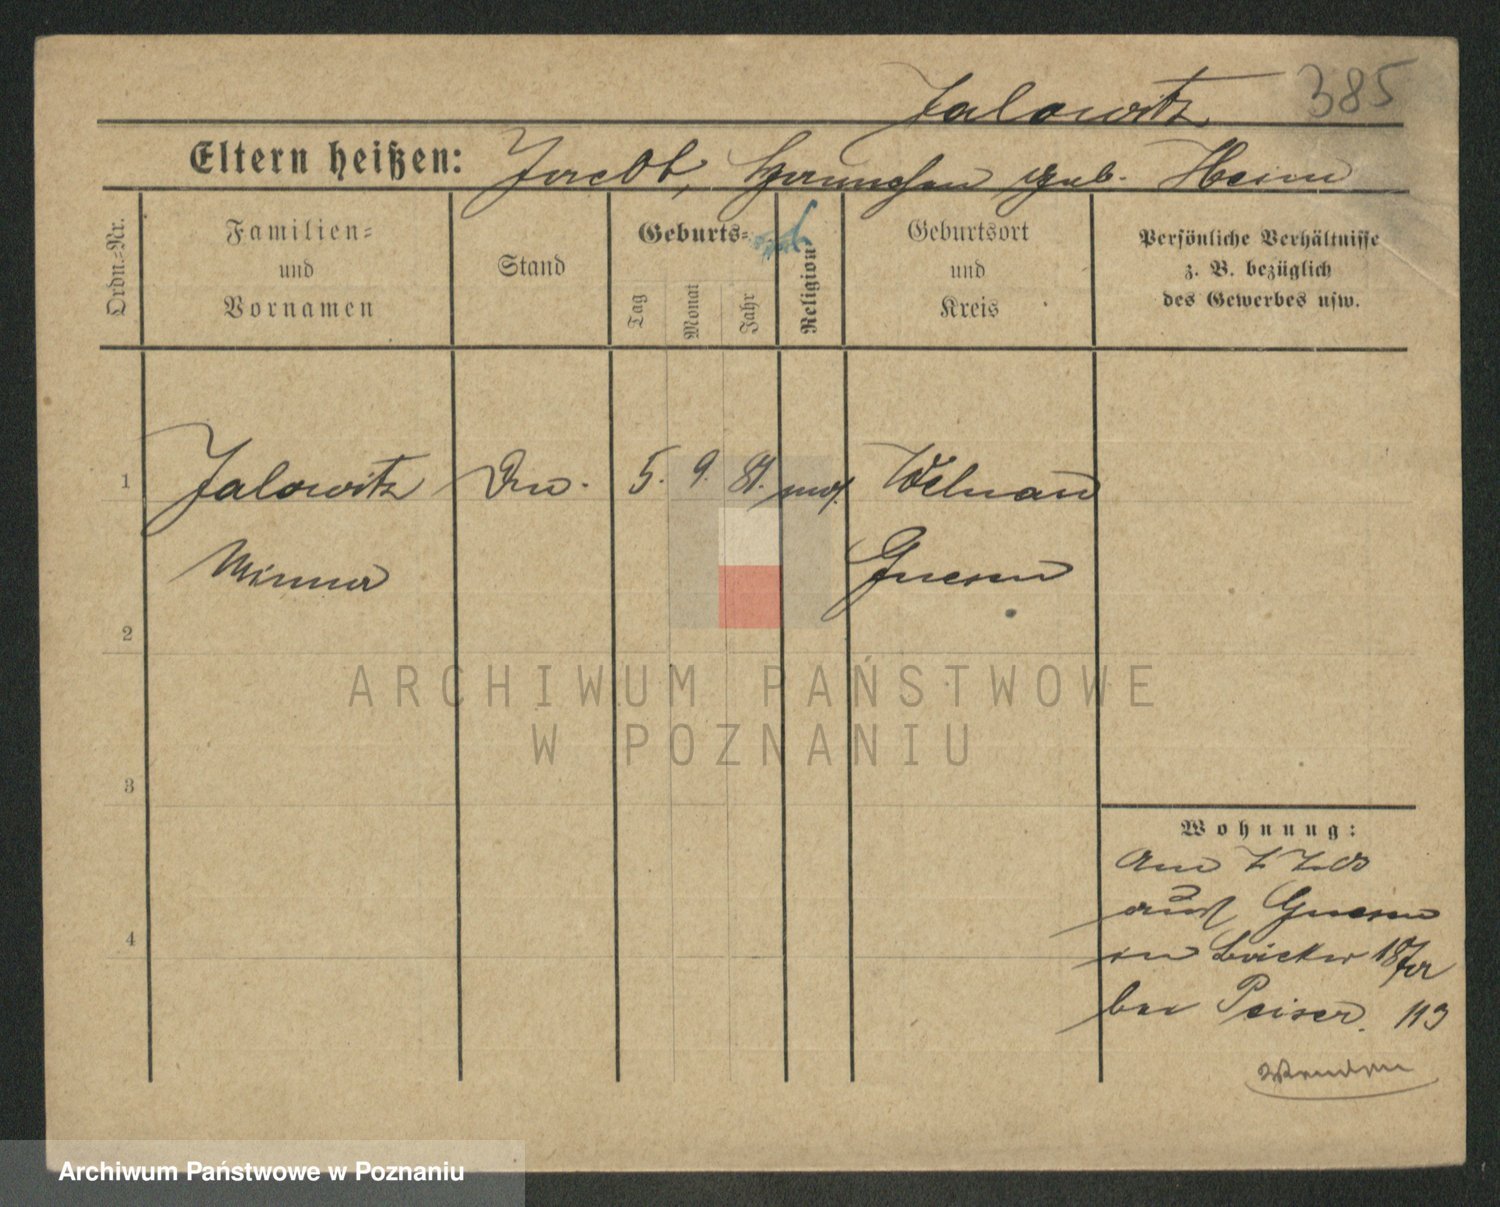 Jalowitz 385
Eltern heißen: Jacob, Hannchen geb. Heim
Ordn.-Nr.
Familien- und Vornamen
Stand
Geburts-
Tag
Monat
Jahr
Religion
Geburtsort und Kreis
Persönliche Verhältnisse
z. B. bezüglich
des Gewerbes usw.
1 Jalowitz 5. 9. 81. mos. Welnau
Minna Gnesen
2
3
4
ARCHIWUM PAŃSTWOWE
W POZNANIU
Wohnung:
Am
aus Gnesen
bei Peiser. 113
Wenden
Archiwum Państwowe w Poznaniu